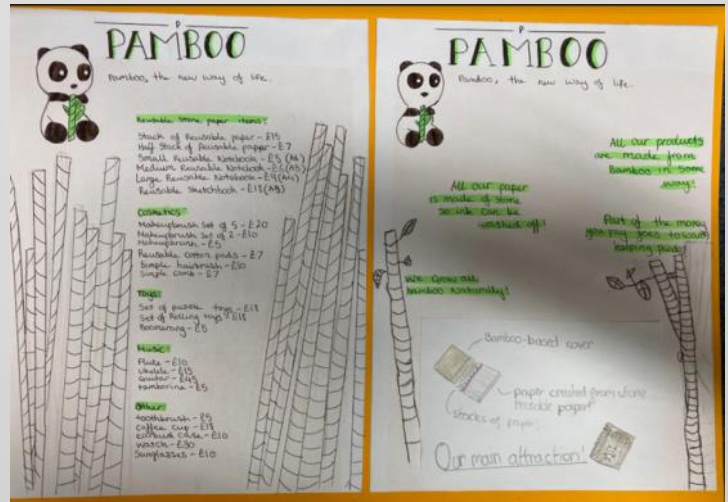 P
PAMBOO
Pamboo, the new way of life.
Reusable Stone paper items:
Stack of Reusable paper - £15
Half Stack of Reusable paper - £7
Small Reusable Notebook - £5 (A6)
Medium Reusable Notebook - £6 (A5)
Large Reusable Notebook - (A4)
Reusable Sketchbook - £18
Cosmetics
Makeupbrush Set of 5 - £20
Makeupbrush Set of 2 - £10
Makeupbrush - £5
Reusable cotton pads - £7
Simple hairbrush - £10
Simple comb - £7
Toys:
Set of puzzle toys - £18
Set of Rolling toys - £18
Boomerang - £5
Music:
Flute - £10
Ukulele - £15
Guitar - £45
tamborine - £5
Other
toothbrush - £5
coffee cup - £18
earbud case - £10
watch - £30
Sunglasses - £10
P
PAMBOO
Pamboo, the new way of life.
All our products
are made from
Bamboo in some
way!
All our paper
is made of stone
so ink can be
washed off!
Part of the money
you pay goes toward
helping
We Grow all
bamboo Naturally!
Bamboo-based cover
paper created from stone
paper!
Stacks of paper!
Our main attraction!